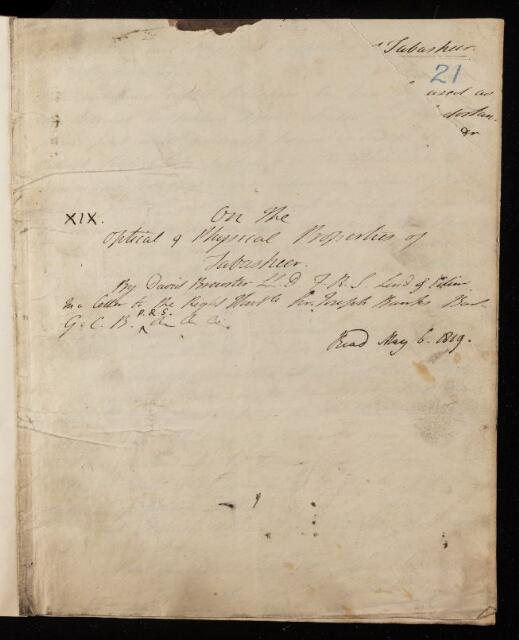 "Tabasheer.
21
used as
&c
XIX. On the
Optical & Physical Properties of
Tabasheer.
By David Brewster LL.D F.R.S. Lond & Edin
In a Letter to the Right Honble Sir Joseph Banks Bart
P.R.S.
G.C.B. &c &c &c.
Read May 6. 1819.